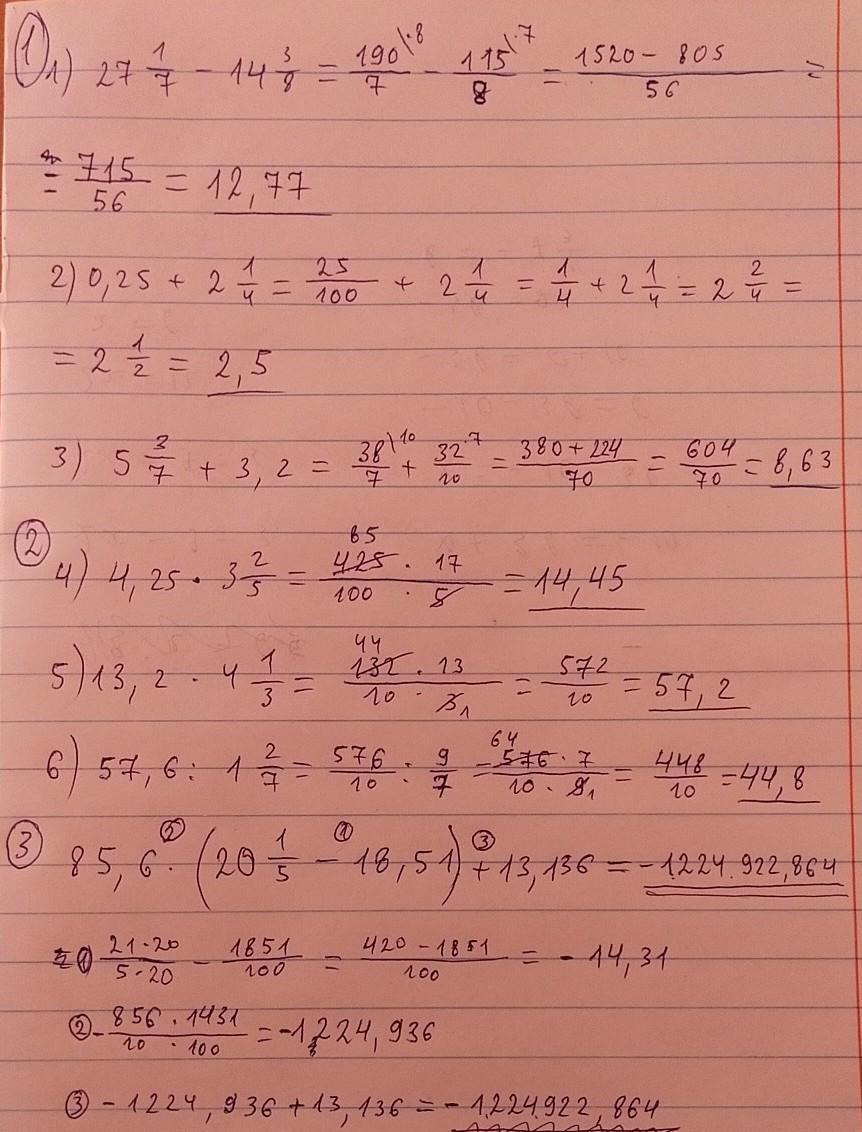 ① 1) 27 1/7 - 14 3/8 = 190\·8/7 - 115\·7/8 = 1520 - 805/56 =
= 715/56 = 12,77
2) 0,25 + 2 1/4 = 25/100 + 2 1/4 = 1/4 + 2 1/4 = 2 2/4 =
= 2 1/2 = 2,5
3) 5 3/7 + 3,2 = 38\10/7 + 32·7/10 = 380+224/70 = 604/70 = 8,63
② 4) 4,25 · 3 2/5 = 85 425 · 17/100 · 5 = 14,45
5) 13,2 · 4 1/3 = 44 132 · 13/10 · 3 1 = 572/10 = 57,2
6) 57,6 : 1 2/7 = 576/10 : 9/7 = 64 576 · 7/10 · 9 1 = 448/10 = 44,8
③ 85,6 ·② (20 1/5 -① 18,51) +③ 13,136 = -1224.922,864
① 21·20/5·20 - 1851/100 = 420 - 1851/100 = - 14,31
② - 856 · 1431/10 · 100 = -1224,936
③ - 1224,936 + 13,136 = - 1.224.922,864